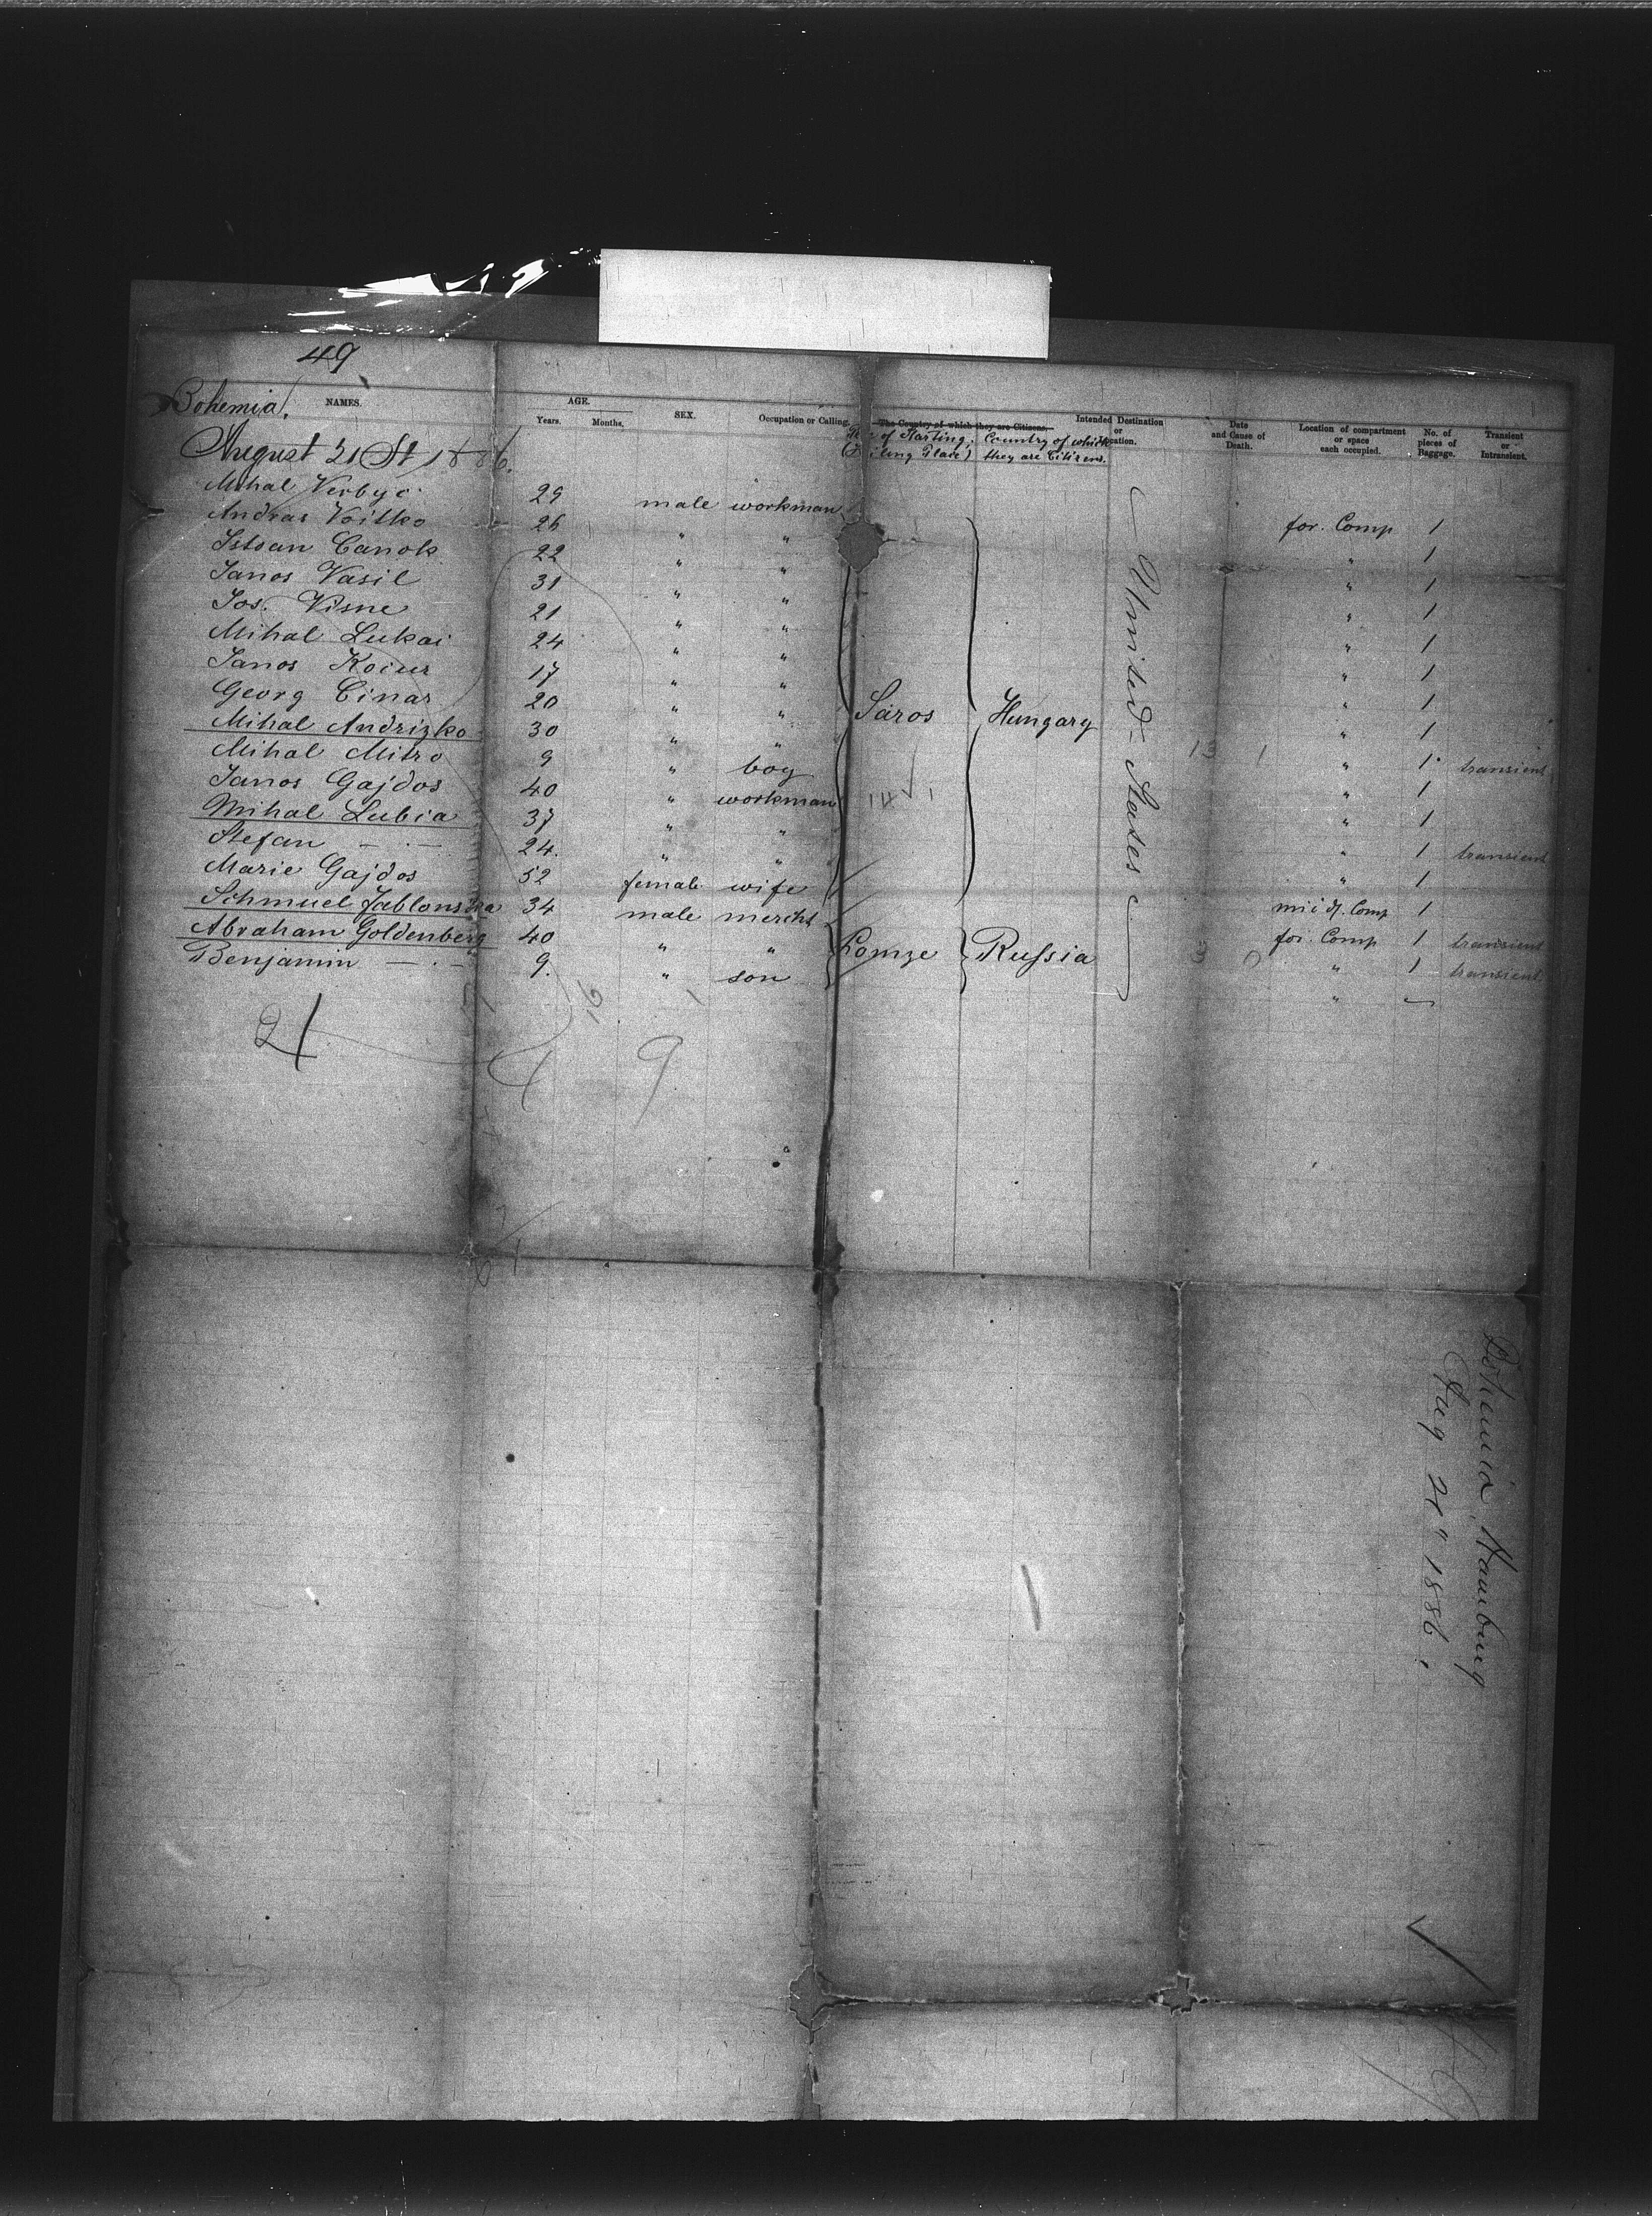 49
Bohemia.
NAMES. AGE. Years. Months. SEX. Occupation or Calling. The Country of which they are Citizens. Intended Destination or Location. Date and Cause of Death. Location of compartment or space each occupied. No. of pieces of Baggage. Transient or Intransient.
of Starting; Country of which
Place) they are Citizens.
August 21 St 1886.
Mihal Verbyc 29 male workman for. Comp 1
Andras Voitko 26 " " " 1
Istvan Canok 22 " " " 1
Janos Vasil 31 " " " 1
Jos. Visne 21 " " " 1
Mihal Lukai 24 " " " 1
Janos 17 " " " 1
Georg Cinar 20 " " Sáros Hungary " 1
Mihal Andrizko 30 " " " 1 transient
Mihal Mitro 9 " boy " 1
Janos Gajdos 40 " workman " 1
Mihal Lubia 37 " " " 1 transient
Stefan — · — 24. " " " 1
Marie Gajdos 52 female wife midd. Comp 1
Schmuel Jablonska 34 male mercht for. Comp 1 transient
Abraham Goldenberg 40 " " Lomze Russia " 1 transient
Benjamin — · — 9. " son " —
United-States
14 1
13 1
3 0
21
16
4 9
Bohemia, Hamburg
Aug 21" 1886.